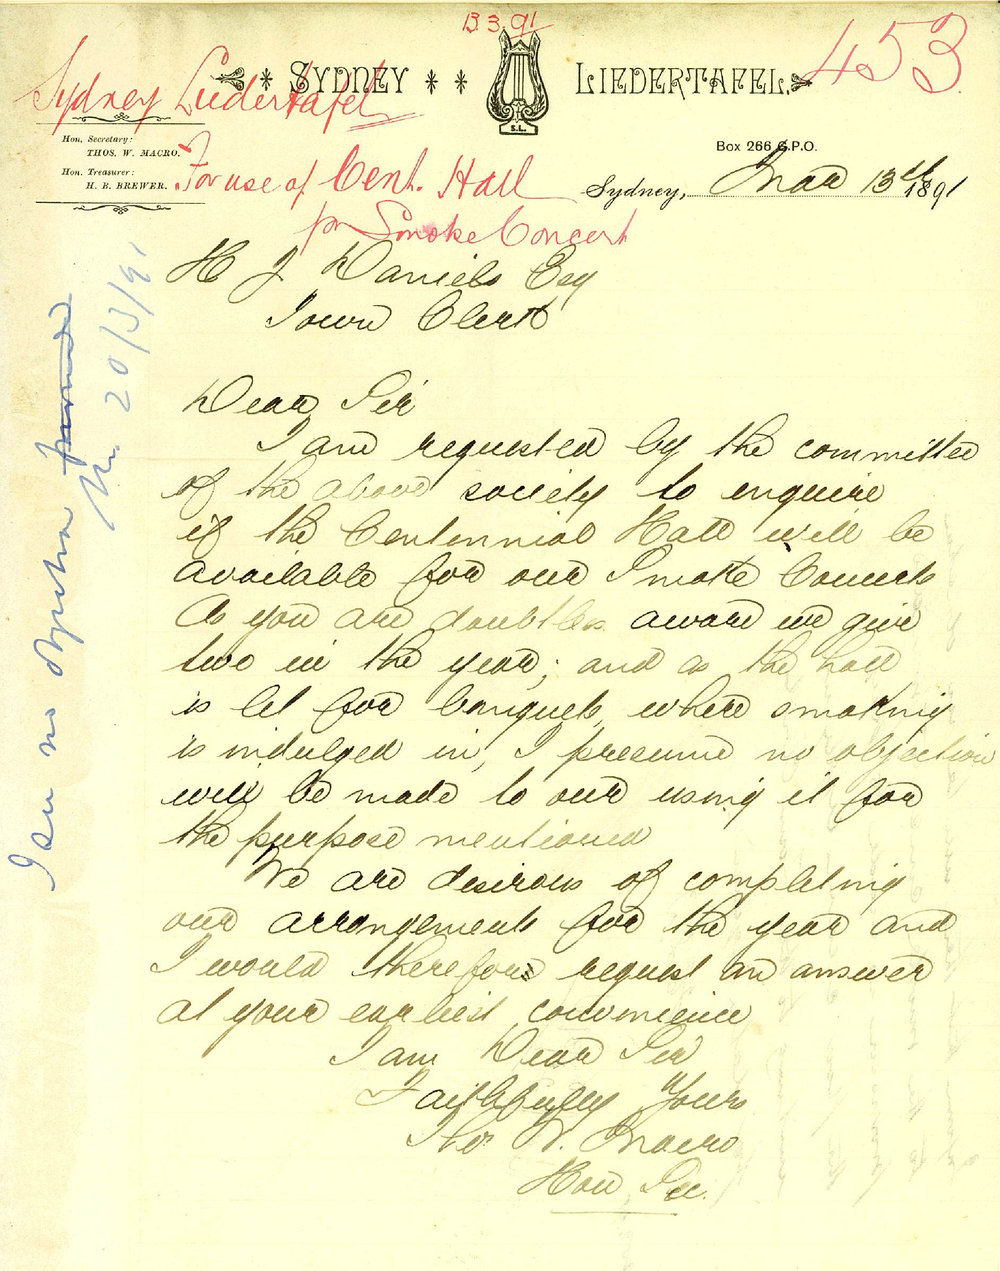 13.3.91
453
SYDNEY LIEDERTAFEL.
S.L.
Sydney Liedertafel
Hon. Secretary:
THOS. W. MACRO.
Hon. Treasurer:
H. B. BREWER.
For use of Cent. Hall
for Smoke Concert
Box 266 G.P.O.
Sydney, Mar 13th 1891
H J Daniels Esq
Town Clerk
Dear Sir
I am requested by the committee
of the above society to enquire
if the Centennial Hall will be
available for our Smoke Concerts
As you are doubtless aware we give
two in the year; and as the hall
is let for banquets, where smoking
is indulged in, I presume no objection
will be made to our using it for
the purpose mentioned
We are desirous of completing
our arrangements for the year and
I would therefore request an answer
at your earliest convenience
I am Dear Sir
Faithfully Yours
Thos W. Macro
Hon Sec.
I see no objection
20/3/91